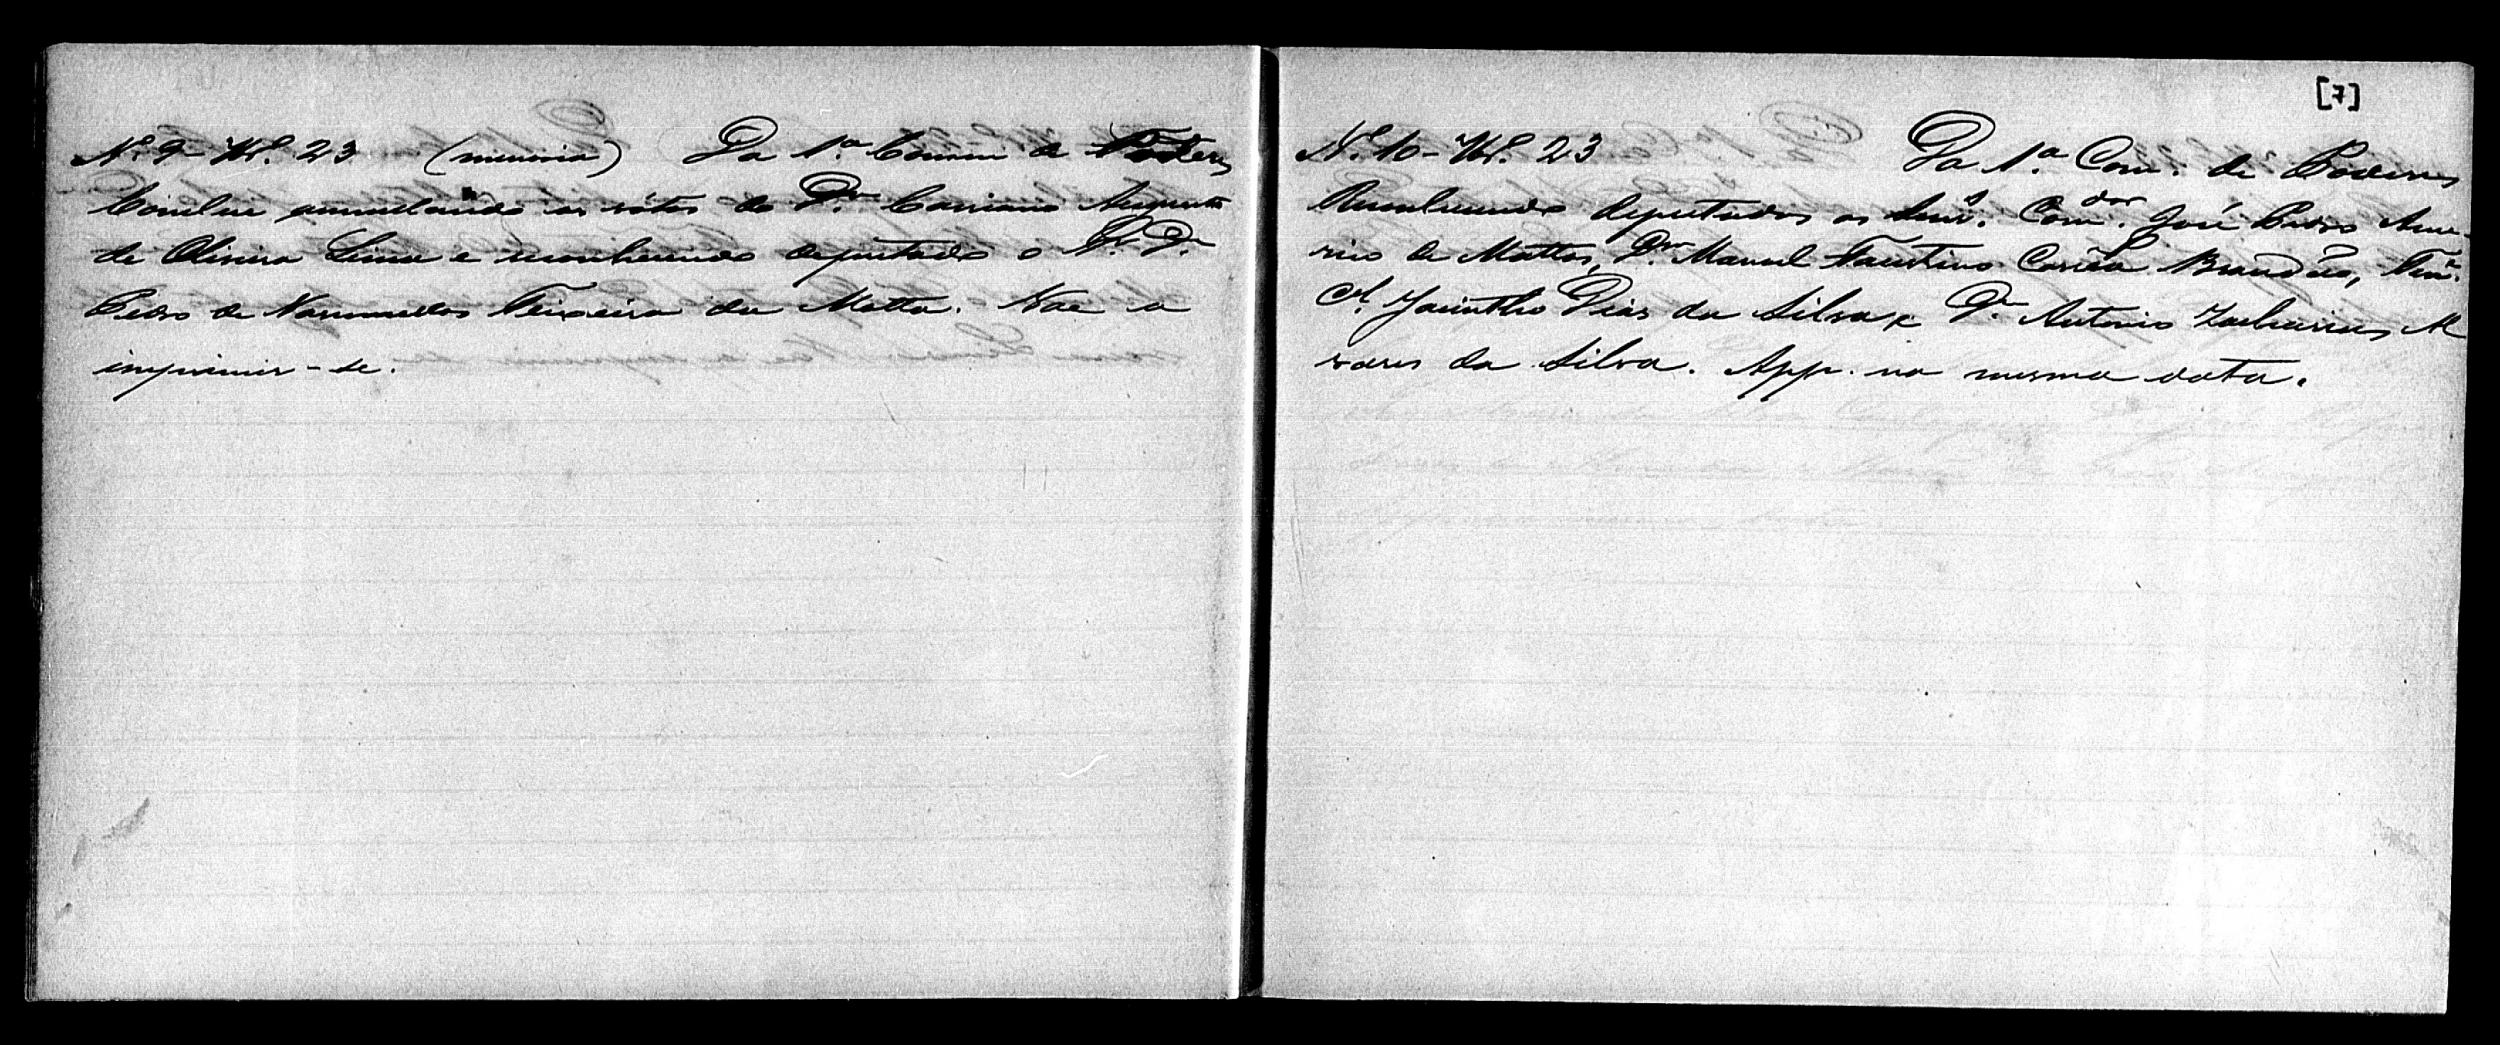 Nº. 9 - 23 (minoria) Da 1.ª Comm de Poderes
Conclue annullando os votos do Dr. Cassiano Augusto
de Oliveira Lima e reconhecendo deputado o Sr. Dr.
Pedro de Vasconcellos Teixeira da Motta. Vae a
imprimir-se.
[7]
Nº. 10 - 23 Da 1.ª Com. de Poderes
Reconhecendo deputados os Snrs. Comdor. José Pedro Ame-
rico de Mattos, Dr. Manuel Faustino Corrêa Brandão, Tente.
Cl. Jacintho Dias da Silva e Dr. Antonio Zacharias Al
vares da Silva. App. na mesma data.